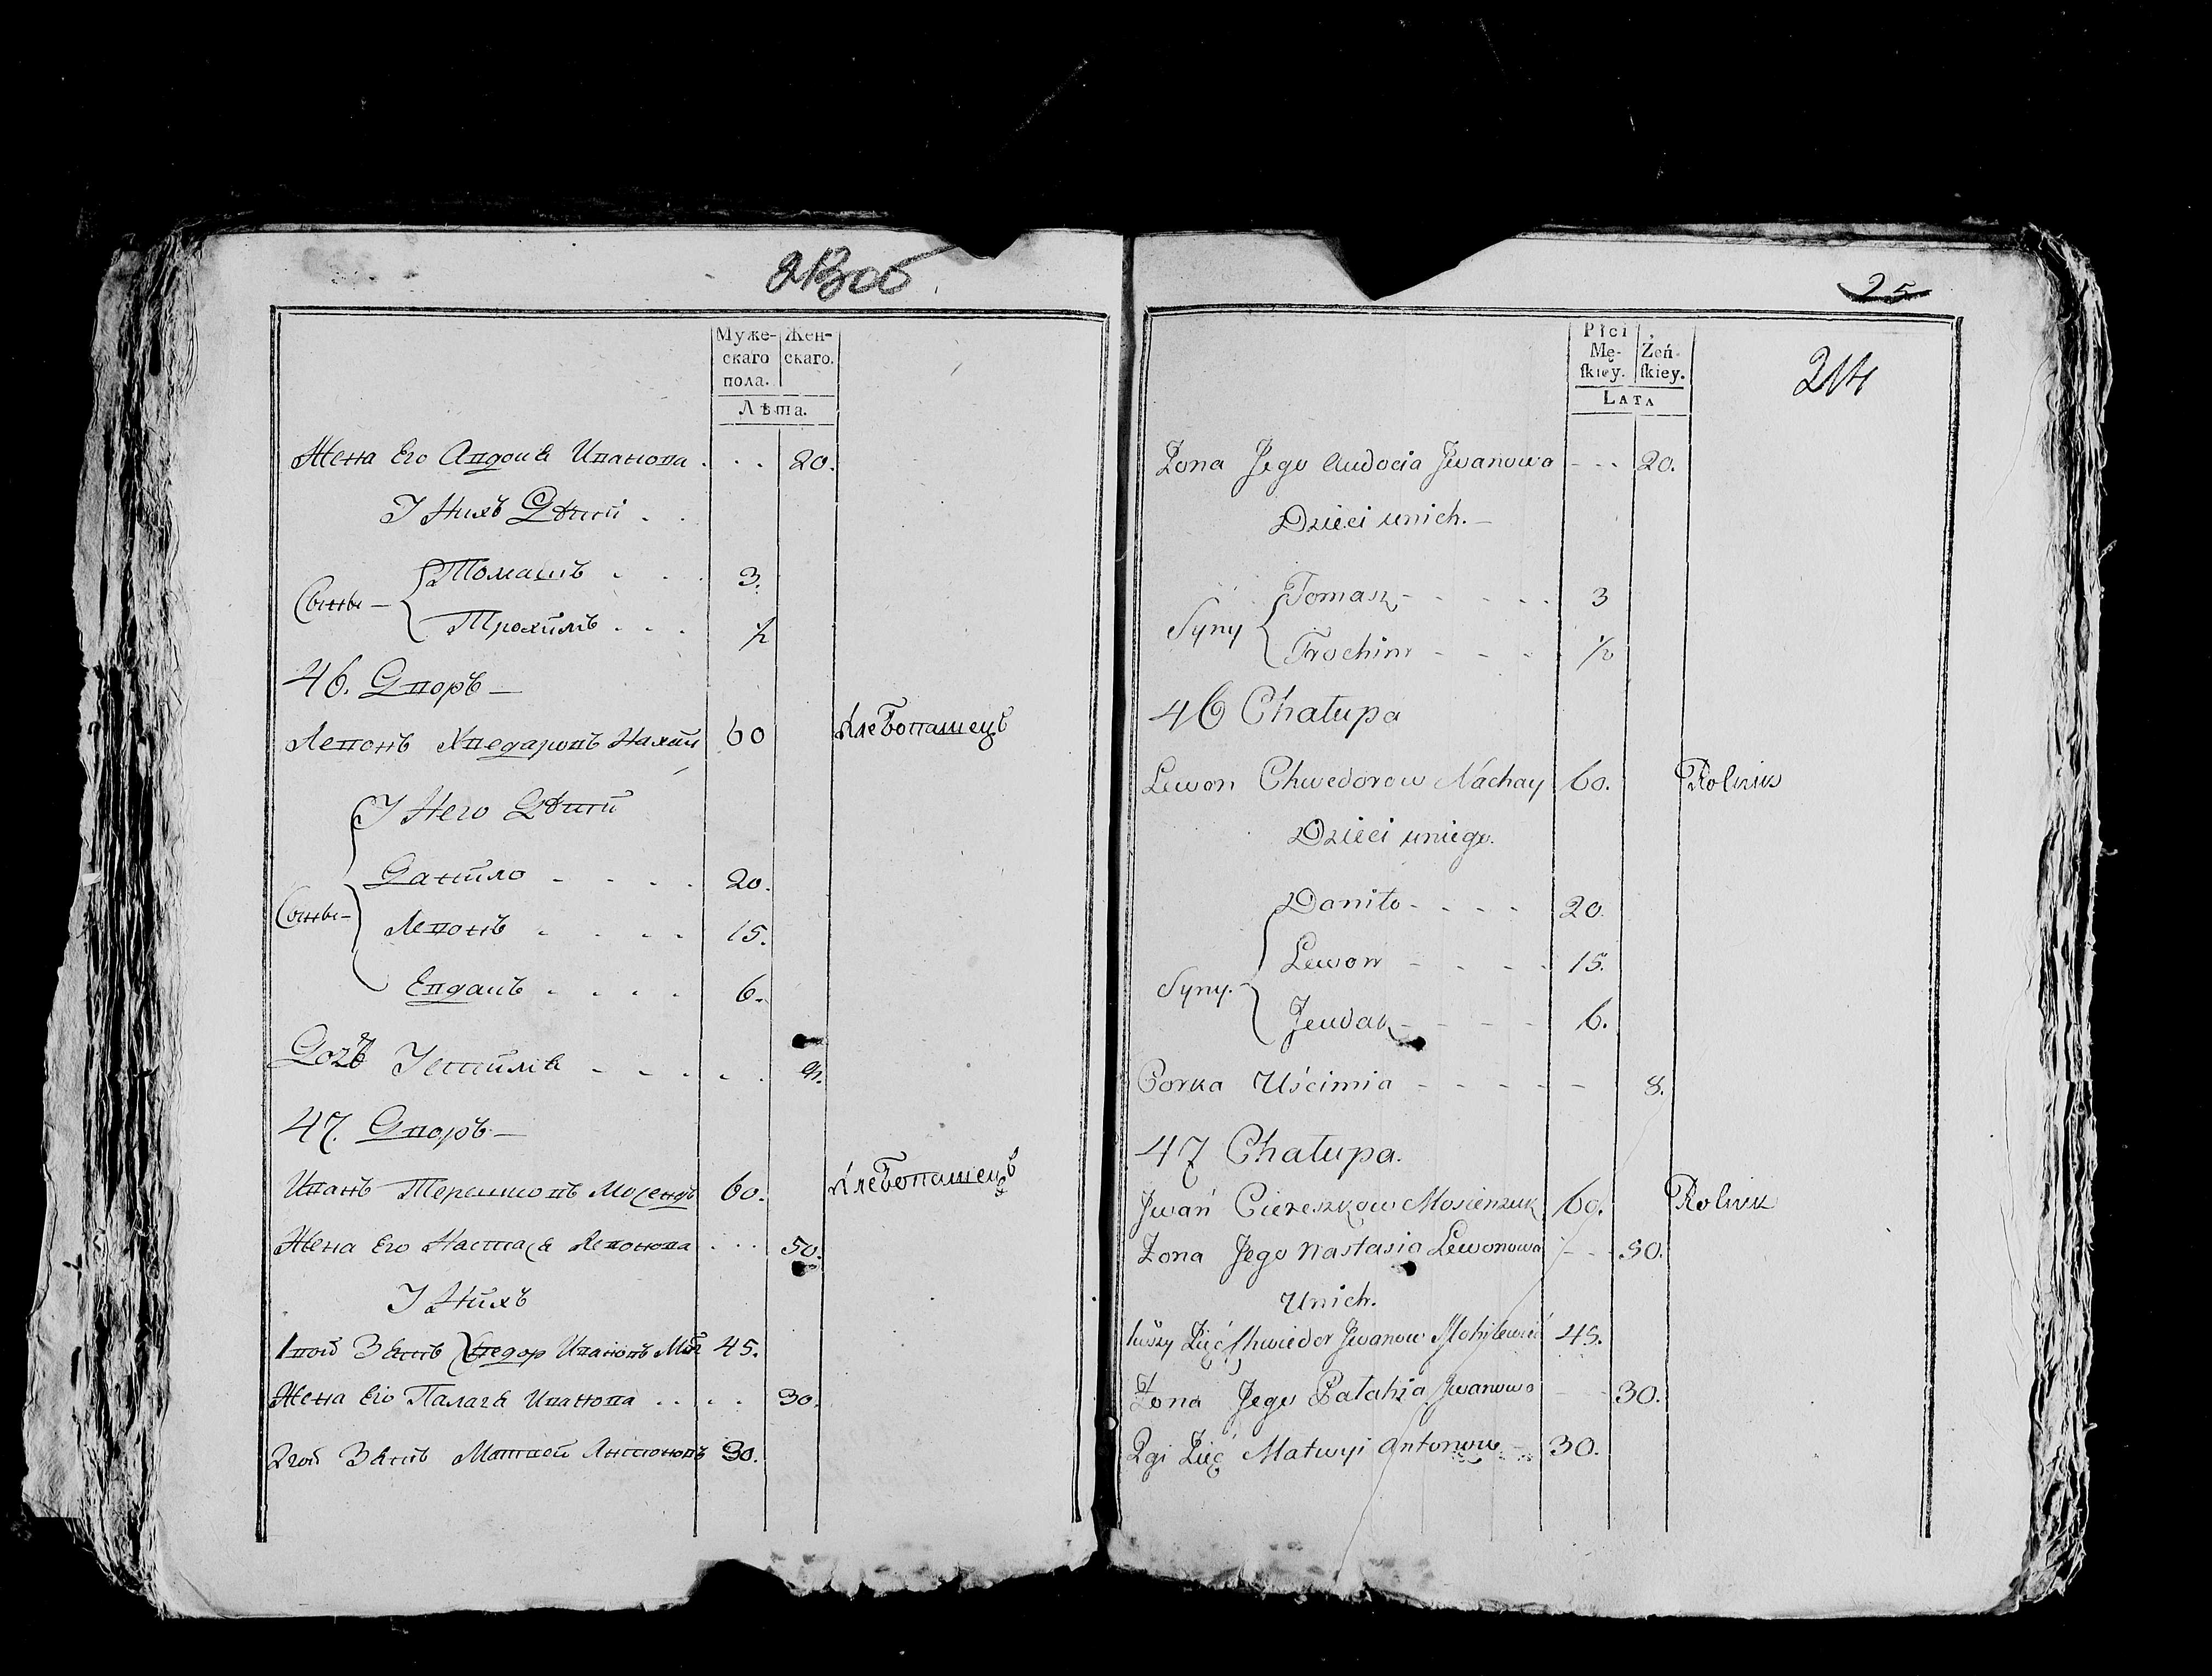 213 об
Муже- Жен-
скаго скаго.
пола.
Лѣта.
Жена Его Авдоція Иванова . . . 20.
У Нихъ Дѣти . .
Томашъ . . . 3.
Сыны —
Трохимъ . . . ½
46. Дворъ —
Левонъ Хведаровъ Нахай 60 Хлебопашецъ
У Него Дѣти
Данило - - - . 20.
Сыны — Левонъ - . . - 15.
Евдакъ - . . . 6.
Дочь Устимія - - - - . 8.
47. Дворъ —
Иванъ Терешковъ Мосенцъ 60. Хлебопашецъ
Жена Его Настасія Левонова . . . 50.
У Нихъ
1вой Зять Хведор Ивановъ 45.
Жена Его Палагія Иванова . . . . 30.
2гой Зять Матвей Антоновъ 30.
25
214
Płci
Mę- Żeń-
ſkiey. ſkiey.
LATA
Zona Jego Audocia Jwanowa - - - 20.
Dzieci unich. —
Tomasz - - - - - 3
Syny
Trochim - - - - ½
46 Chałupa
Lewon Chwedorow Náchay 60. Rolnik
Dzieci uniego.
Daniło - - - - 20.
Lewon - - - - 15.
Syny.
Jeudak - - - - 6.
Corka Uścimia - - - - - 8.
47 Chałupa.
Jwań Ciereszkow Mosienzuk 60. Rolnik
Zona Jego Nastasia Lewonowa - - - 50.
Unich.
Zięć Chwiedor Jwanow Mohilewieć 45.
Zona Jego Pałahia Jwanowa - - 30.
2gi Zięć Matwyi Antonow - - 30.